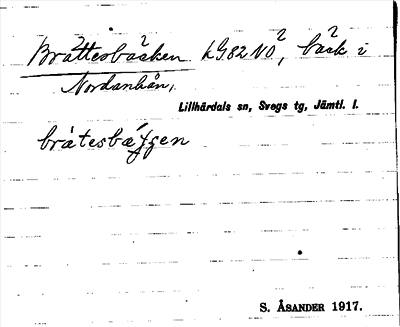 Bråttesbäcken h G.82 NO, bäck i
Nordanhån,
Lillhärdals sn, Svegs tg, Jämtl. l.
bråtesbæ
S. ÅSANDER 1917.